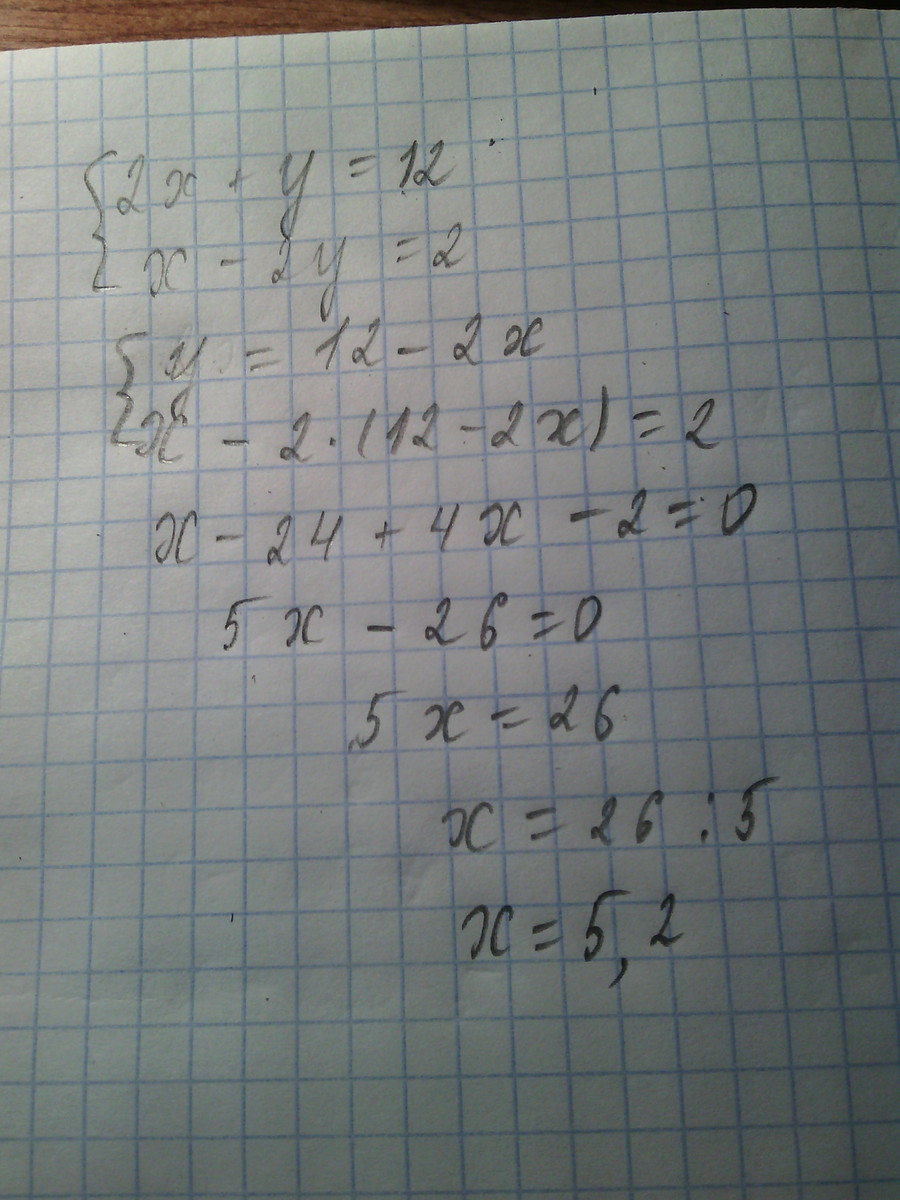 {2x + y = 12
x - 2y = 2
{y = 12 - 2x
x - 2·(12 - 2x) = 2
x - 24 + 4x - 2 = 0
5x - 26 = 0
5x = 26
x = 26 : 5
x = 5,2